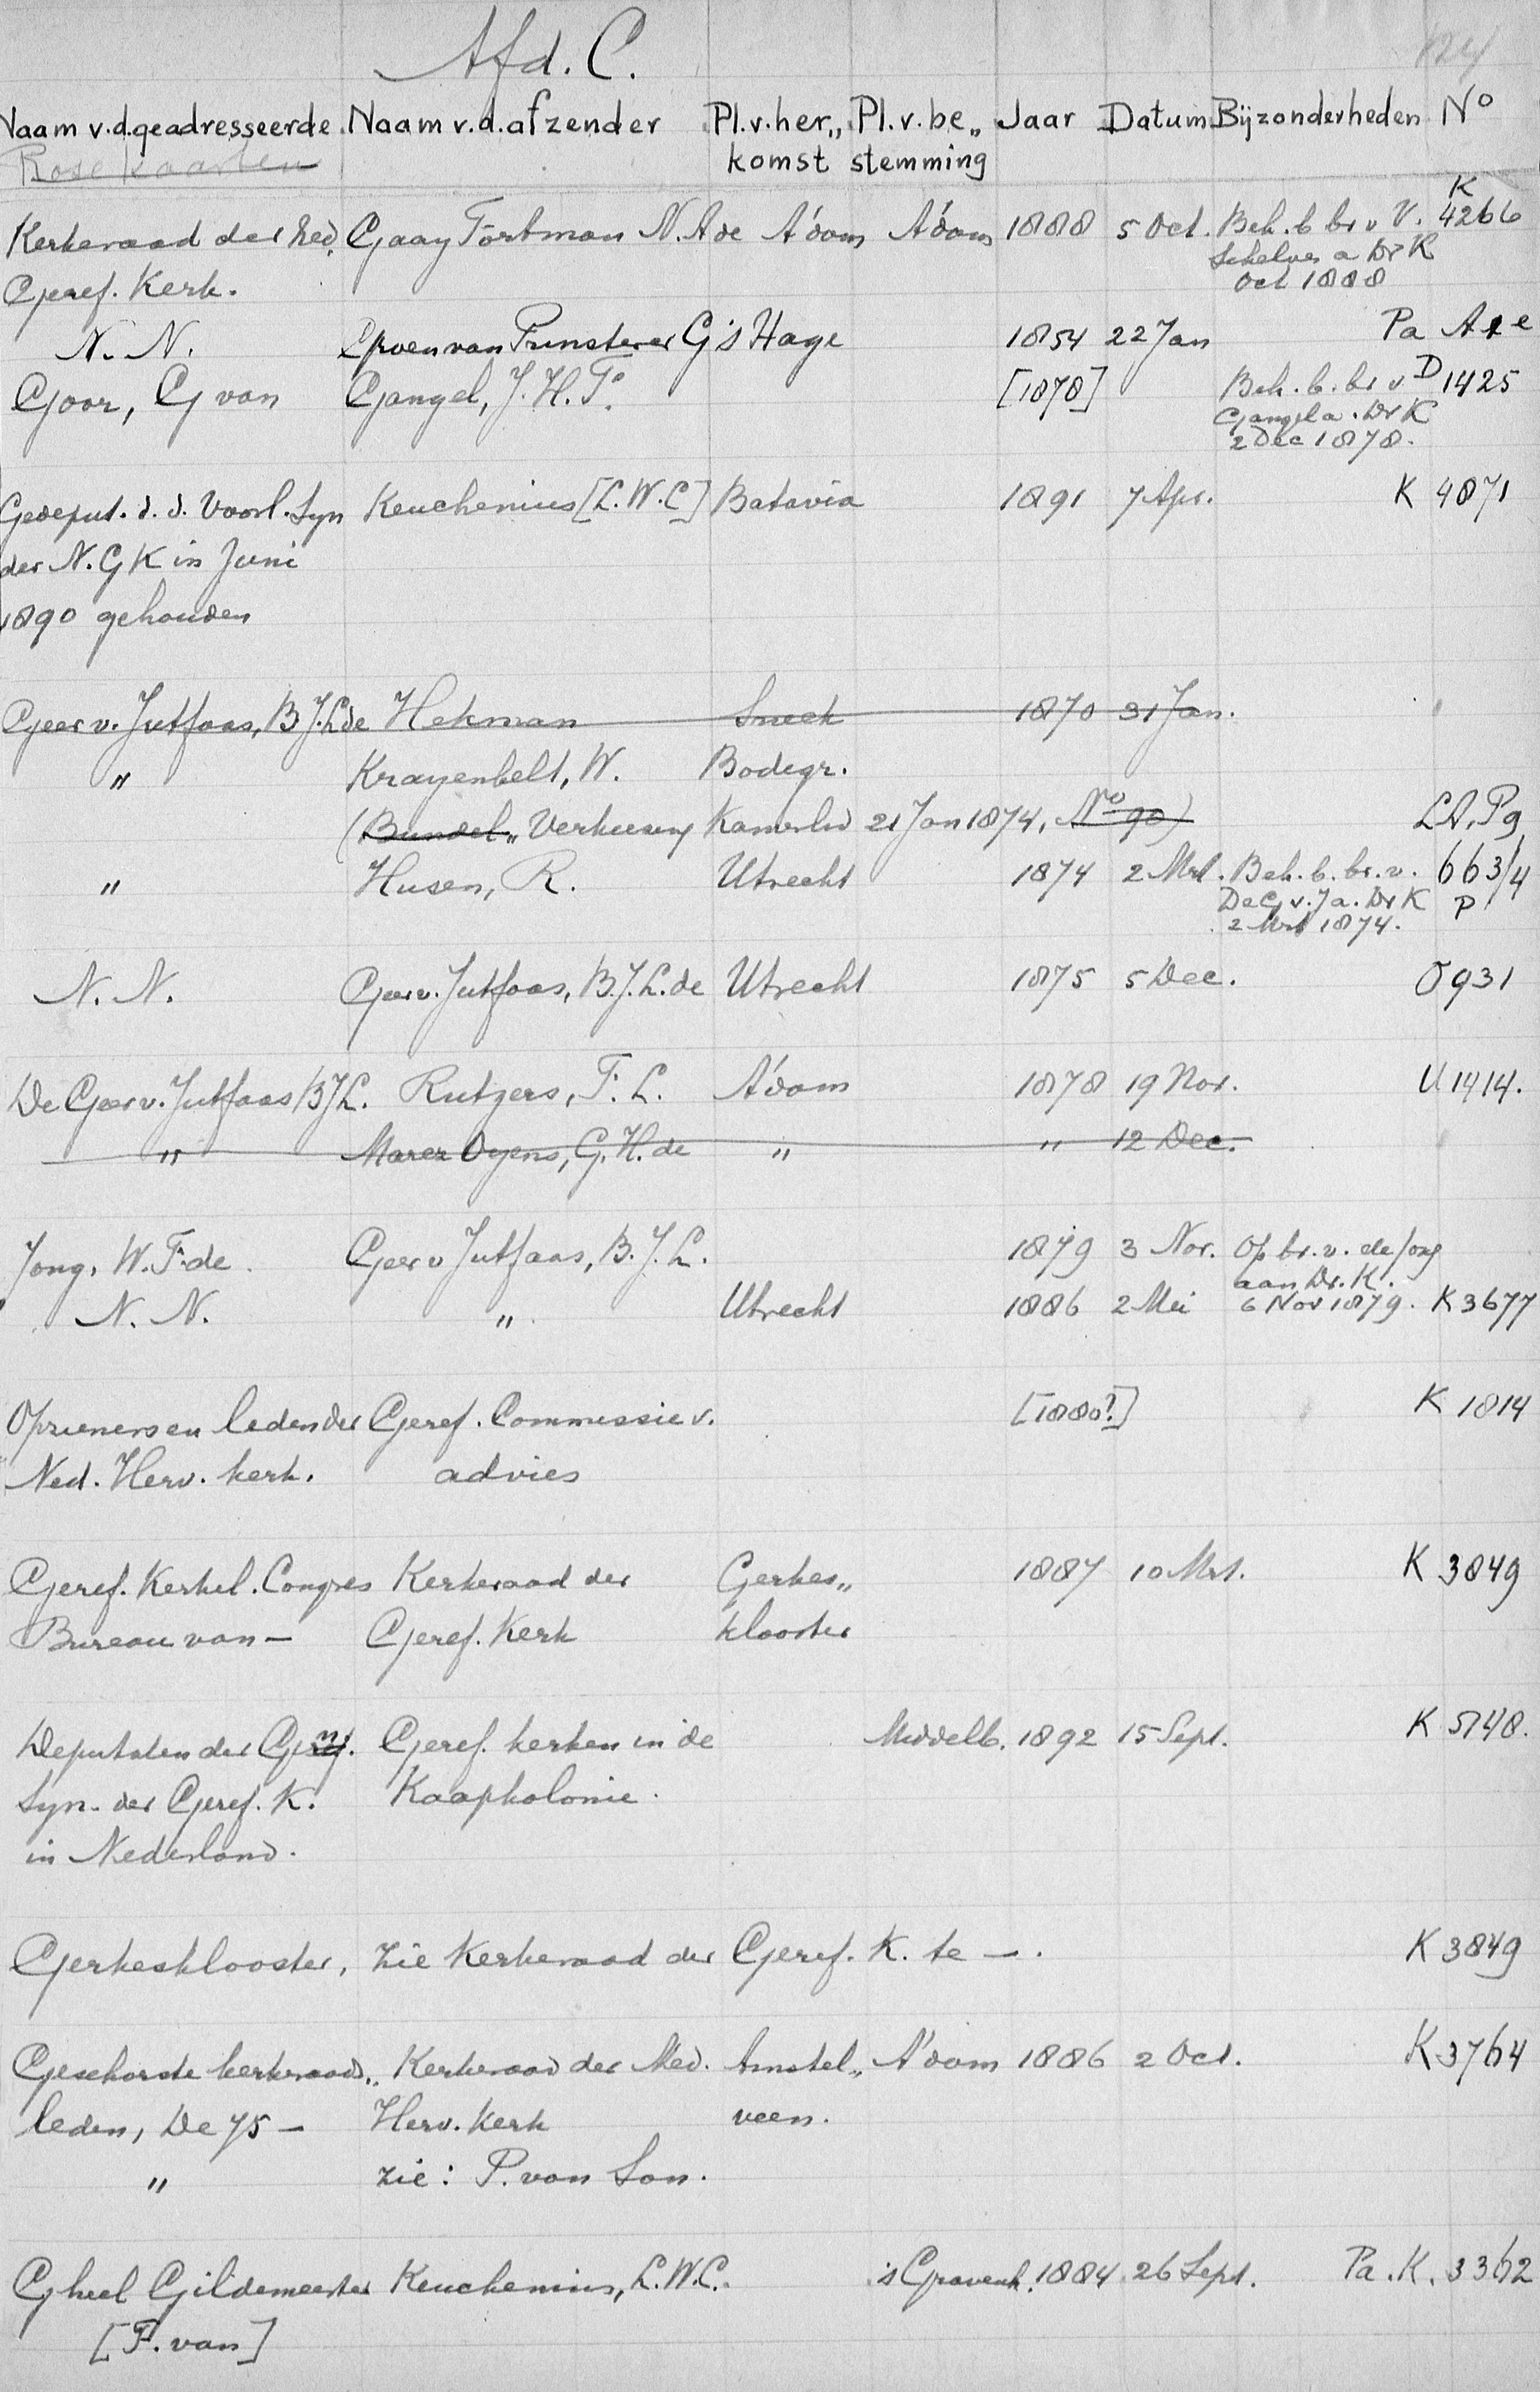 Afd. C.
124
Naam v.d. geadresseerde Naam v.d. afzender Pl.v.her„ Pl.v.be„ Jaar Datum Bijzonderheden No
Rose kaarten komst stemming
K
Kerkeraad der Ned. Gaay Fortman N.A de A'dam A'dam 1888 5 Oct. Beh. b br v V. 4266
Schelven a Dr K
Geref. Kerk. Oct 1888
N. N. Groen van Prinsterer G 's Hage 1854 22 Jan Pa A1e
Goor, G van Gangel, J. H. F. [1878] Beh. b. br v D 1425
Gangel a. Dr K
2 Dec 1878.
Gedeput. d. d. Voorl. Syn Keuchenius [L. W. C] Batavia 1891 7 Apr. K 4871
der N. G K in Juni
1890 gehouden
Geer v. Jutfaas, B J. L de Hekman Sneek 1870 31 Jan.
" Krayenbelt, W. Bodegr.
(Bundel „ Verkiesing Kamerlid 21 Jan 1874, No 90) LA. Pg
" Husen, R. Utrecht 1874 2 Mrt. Beh. b. br. v. 663/4
De G v. J a. Dr K P
2 Mrt 1874.
N. N. Geer v. Jutfaas, B. J. L. de Utrecht 1875 5 Dec. O 931
De Geer v. Jutfaas B J L. Rutgers, F. L. A'dam 1878 19 Nov. U 1414.
" Marez Oyens, G. H. de " " 12 Dec.
Jong, W. F. de Geer v Jutfaas, B. J. L. 1879 3 Nov. Op br. v. de Jong
aan Dr. K.
N. N. " Utrecht 1886 2 Mei 6 Nov 1879. K 3677
Opzieners en leden der Geref. Commissie v. [1880?] K 1814
Ned. Herv. kerk. advies
Geref. Kerkel. Congres Kerkeraad der Gerkes„ 1887 10 Mrt. K 3849
Bureau van — Geref. Kerk klooster
Deputaten der Gen. Geref. kerken in de Middelb. 1892 15 Sept. K 5148.
Syn. der Geref. K. Kaapkolonie.
in Nederland.
Gerkesklooster, zie Kerkeraad der Geref. K. te —. K 3849
Geschorste kerkeraads„ Kerkeraad der Ned. Amstel„ A'dam 1886 2 Oct. K 3764
leden, De 75 — Herv. Kerk veen.
" zie: P. van Son.
Gheel Gildemeester Keuchenius, L. W. C. 's Gravenh. 1884 26 Sept. Pa. K. 3362
[F. van]